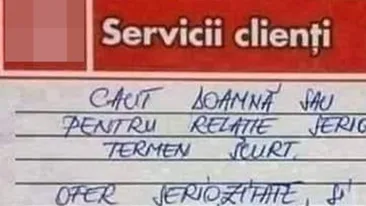 Servicii clienți
CAUT DOAMNĂ SAU
PENTRU RELAȚIE SERIO
TERMEN SCURT.
OFER SERIOZITATE, ȘI